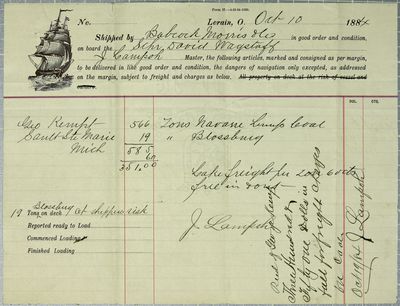 No.
Lorain, O. Oct 10 1884
Shipped by Babcock Morris & Co in good order and condition,
on board the Schr David Wagstaff
J Lampoh Master, the following articles, marked and consigned as per margin,
to be delivered in like good order and condition, the dangers of navigation only excepted, as addressed
on the margin, subject to freight and charges as below. All property on deck at the risk of vessel and
DOL. CTS.
Geo Kempt 566 Tons Navarre Lump Coal
Sault Ste Marie 19 " Blossburg
Mich 585
60
351.00
Lake freight per ton 60 cts
free in & out
Blossburg
19 Tons on deck / at shippers risk
Reported ready to Load
Commenced Loading
Finished Loading
J. Lampoh
Recd of Geo Kempt
Three Hundred &
Fifty one Dollars in
full for freight charges
on Coal
J Lampoh